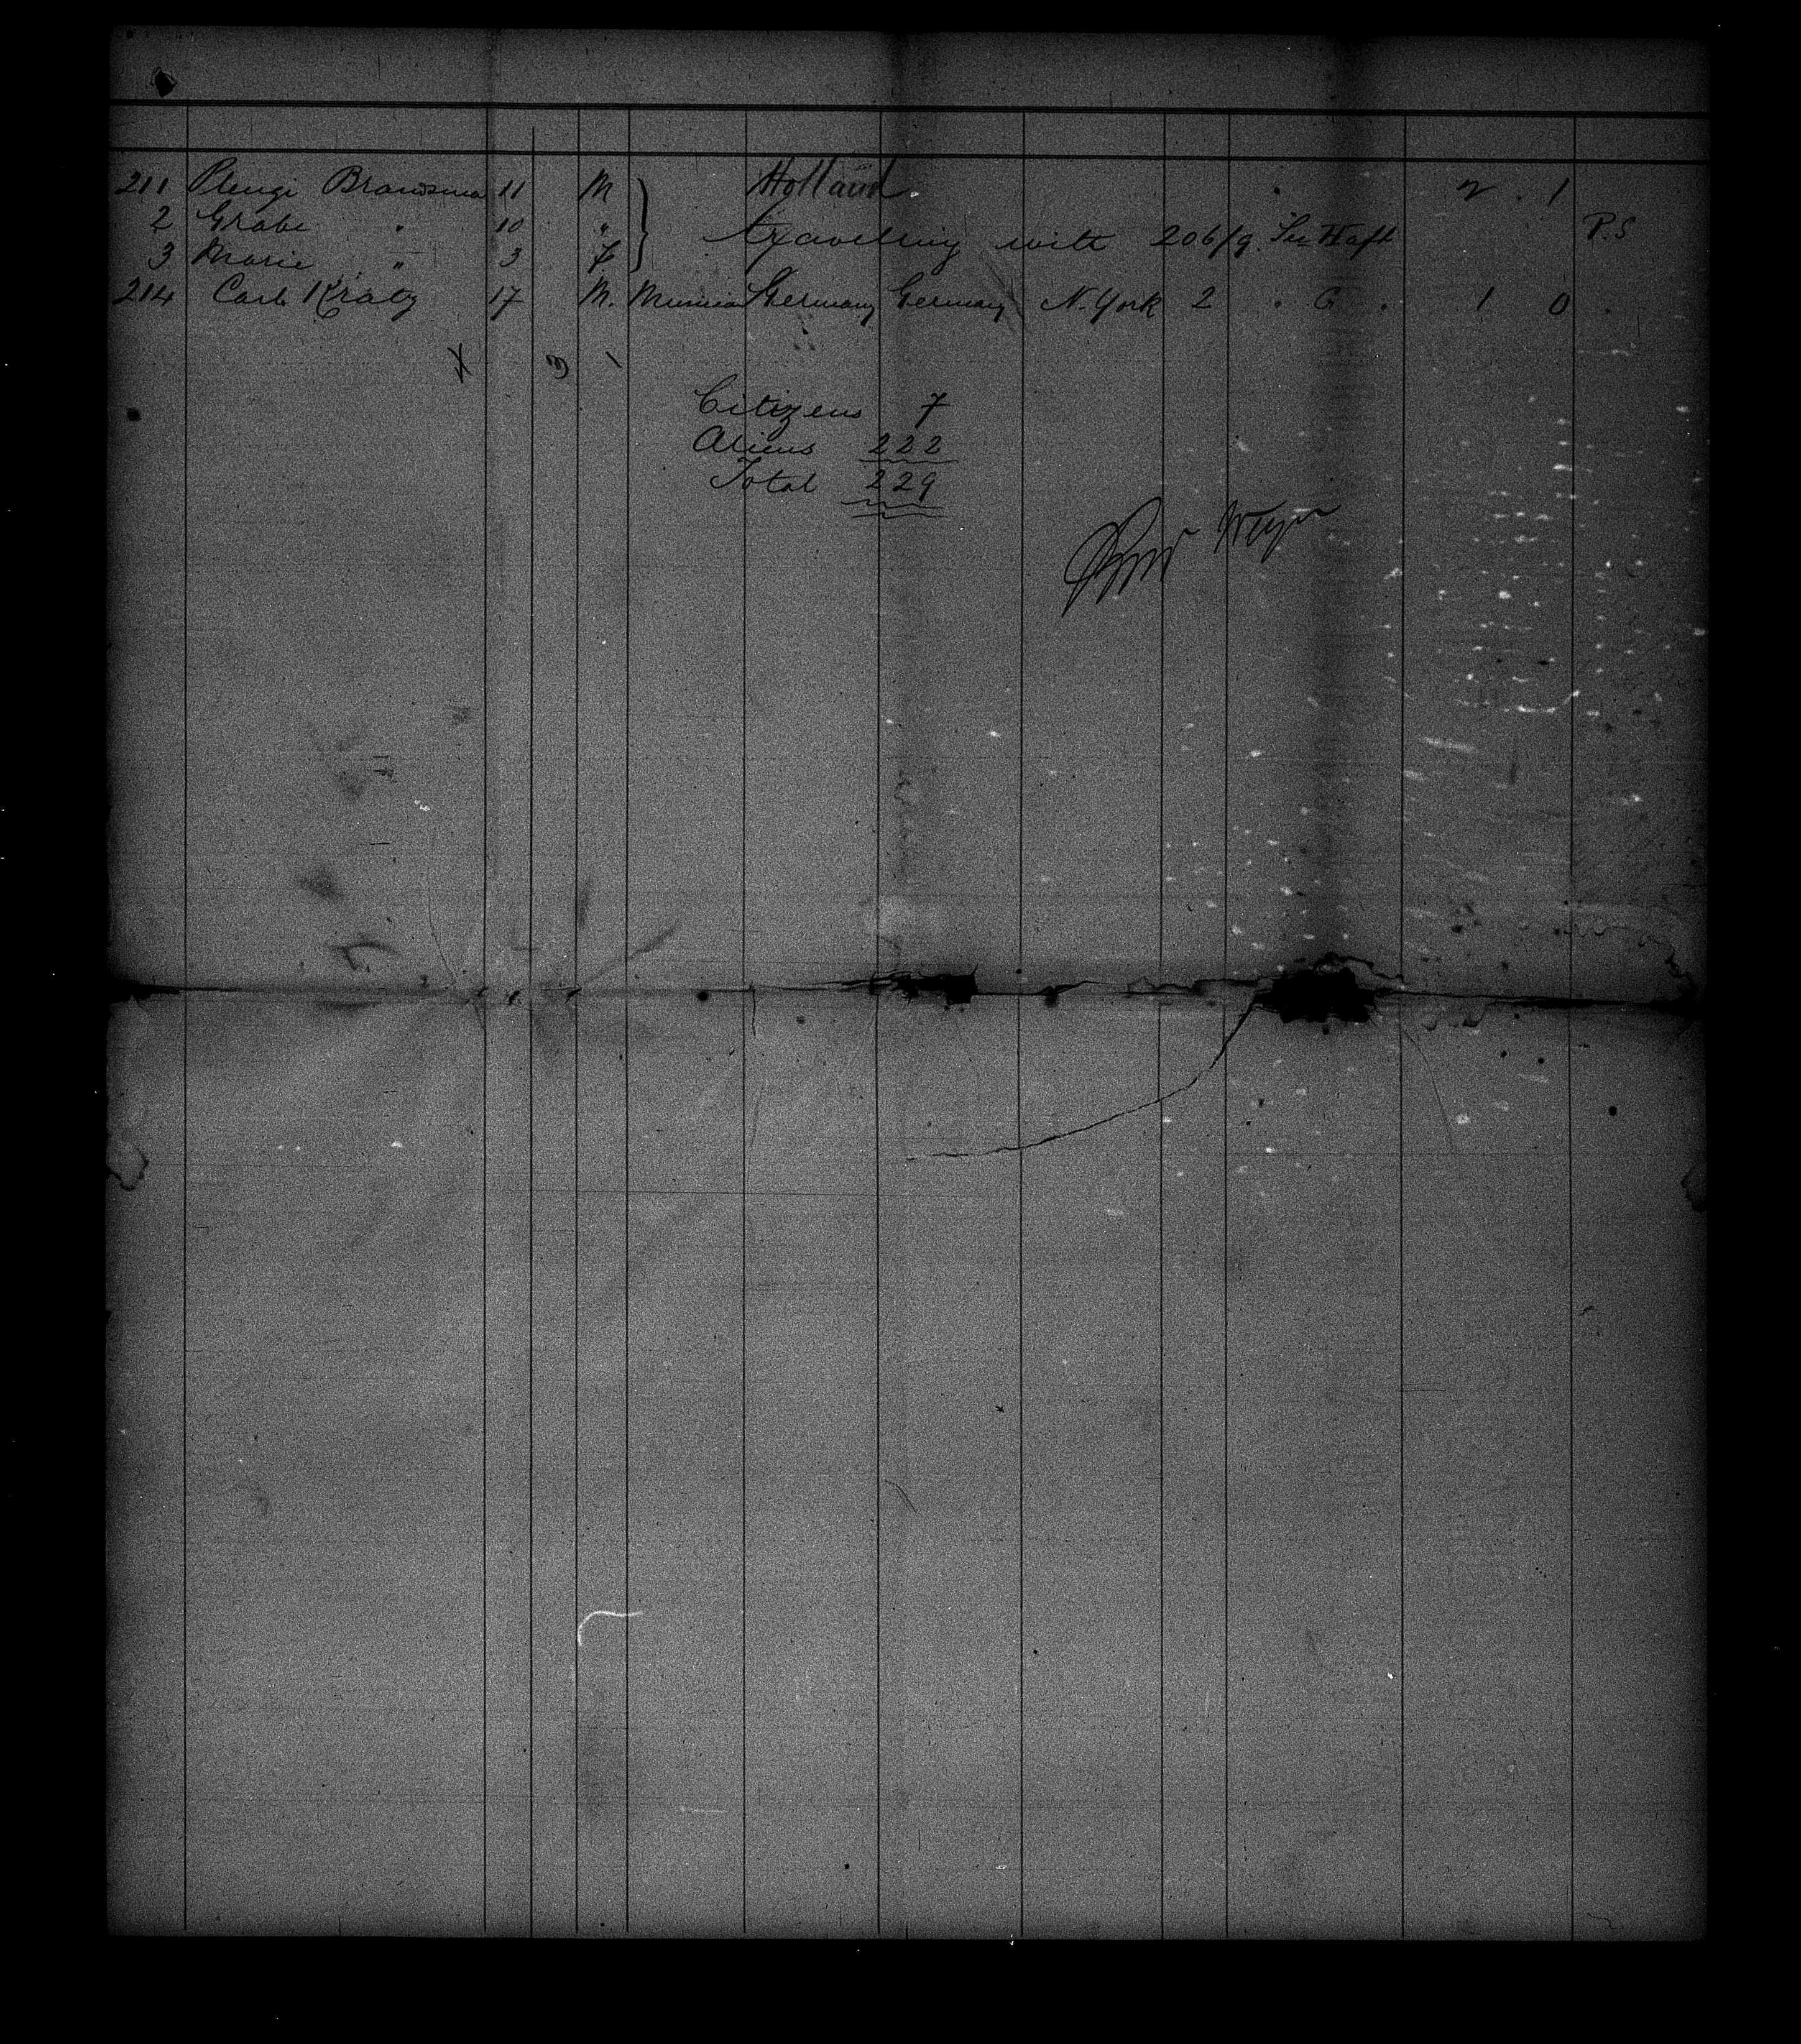 211 Plengi Brawsma 11 M Holland 2 . 1
2 Grabe " 10 " travelling with 206/9. P.S
3 Marie " 3 f
214 Carl Kratz 17 M. Germany Germany N. York 2 " G . 1 0
Citizens 7
Aliens 222
Total 229